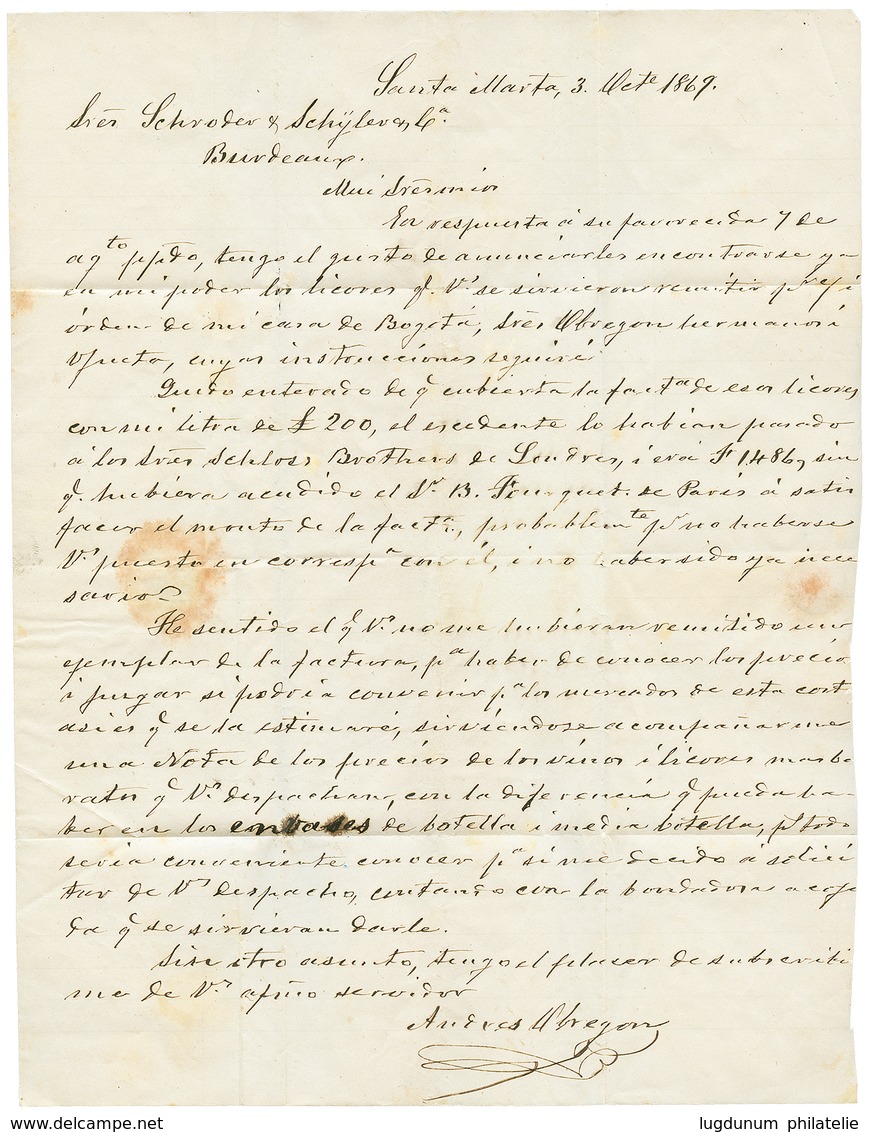 Santa Marta, 3. Octe 1869.
Srēs Schroder & Schÿler & Ca.
Burdeaux.
Mui Srēs mios
En respuesta á su favorecida 7 de
agto ppdo, tengo el gusto de anunciarles encontrarse ya
en mi poder los licores q̄. Vs se sirvieron remitir pr
órden de mi casa de Bogotá, Srēs Obregon hermanos i
cuyas instrucciones seguiré.
Quedo enterado de q̄ cubierta la facta de esos licores
con mi letra de £ 200, el escedente lo habian pasado
á los Srēs Schloss Brothers de Londres, i era F 1486, sin
q̄. hubiera acudido el Sr. B. Fourquet. de Paris á satis
facer el monto de la facta., probablemte pr no haberse
Vs puesto en correspa con él, i no haber sido ya nece
sario
He sentido el q̄ Vs no me hubieran remitido un
ejemplar de la factura, pa haber de conocer los precio
i juzgar si podria convenir pa los mercados de esta cost
asi es q̄ se la estimaré, sirviéndose acompañarme
una Nota de los precios de los vinos i licores mas ba
ratos q̄ Vs despachan, con la diferencia q̄ pueda ha-
ber en los envases de botella i media botella, pr todo
seria conveniente conocer pa si me decido á solici
tar de Vs despacho, contando con la bondadosa acoji
da q̄ se sirvieran darle.
Sin otro asunto, tengo el placer de subscribi
me de Vs afmo servidor
Andres Obregon
www.delcampe.net
lugdunum philatelie